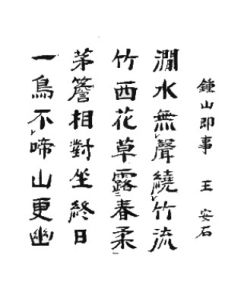 鍾山即事 王安石
澗水無聲繞竹流
竹西花草露春柔
茅簷相對坐終日
一鳥不啼山更幽